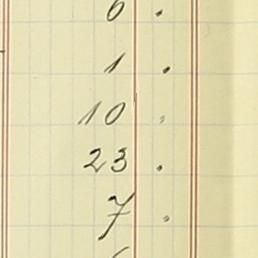 6 .
1 .
10 .
23 .
7 .